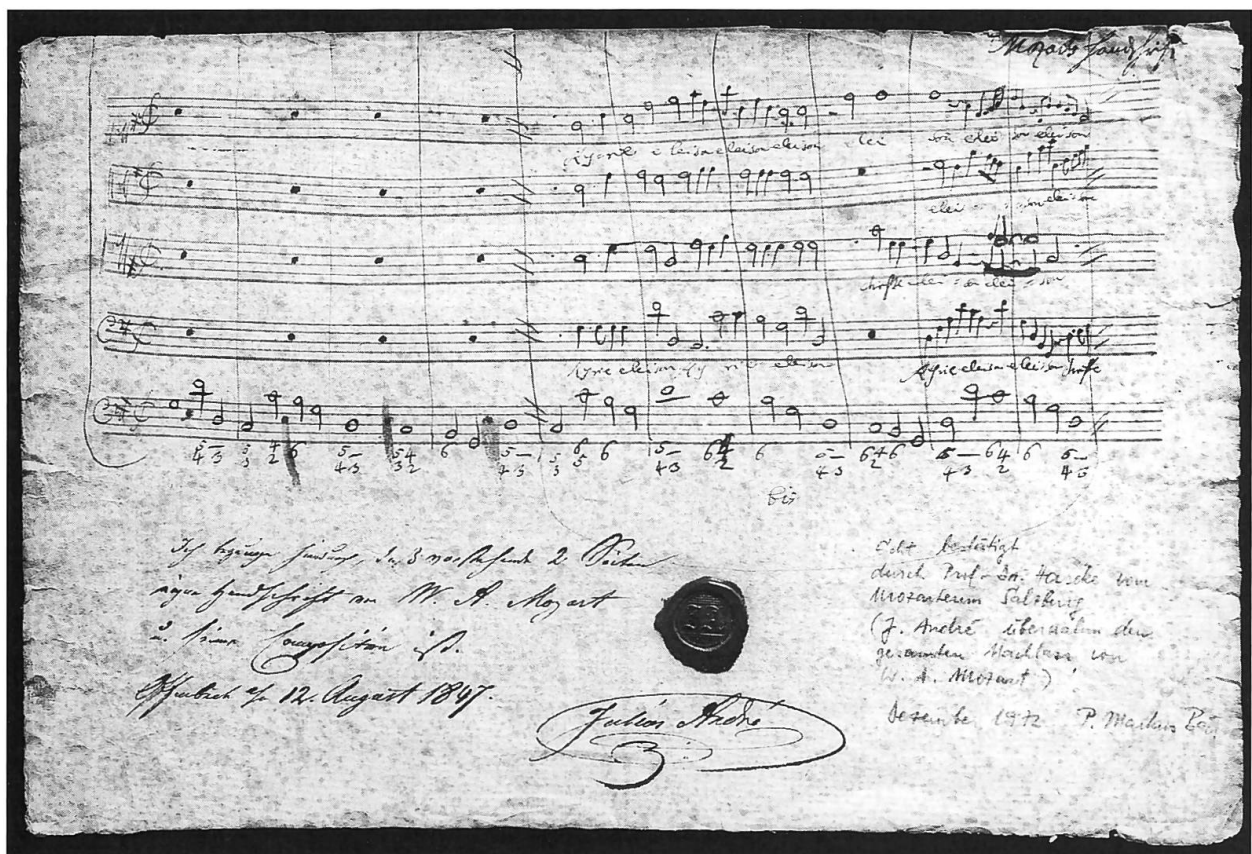 Mozarts Handschrift
Kyrie eleison eleison eleison elei son elei son eleison
elei son eleison
christe elei son elei son
Kyrie eleison Ky rie eleison Kyrie eleison eleison christe
bis
Ich bezeuge hierdurch, daß vorstehende 2 Seiten
eigne Handschrift von W. A. Mozart
u. seine Composition ist.
Offenbach a/m 12. August 1847.
Julius André
Echt bestätigt
durch Prof. Dr. von
Mozarteum Salzburg
(J. André übernahm den
gesamten Nachlass von
W. A. Mozart)
Dezember 1972 P. Markus